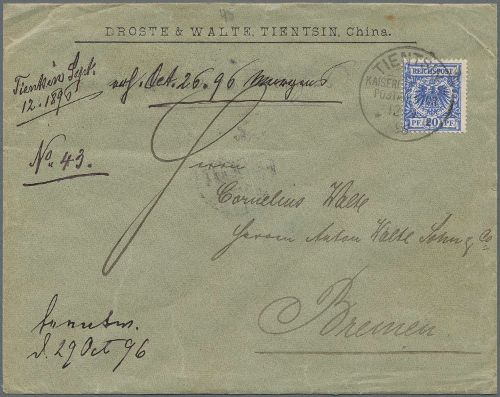 DROSTE & WALTE, TIENTSIN, China.
Tientsin Sept.
12. 1896
Oct. 26. 96 Morgens
No. 43.
TIENTSIN
KAISERL
POST
12
96
REICHSPOST
PF. 20 PF.
Herrn
Cornelius Walte
Herren Anton Walte Sohn & Co
Bremen.
d. 29 Oct 96